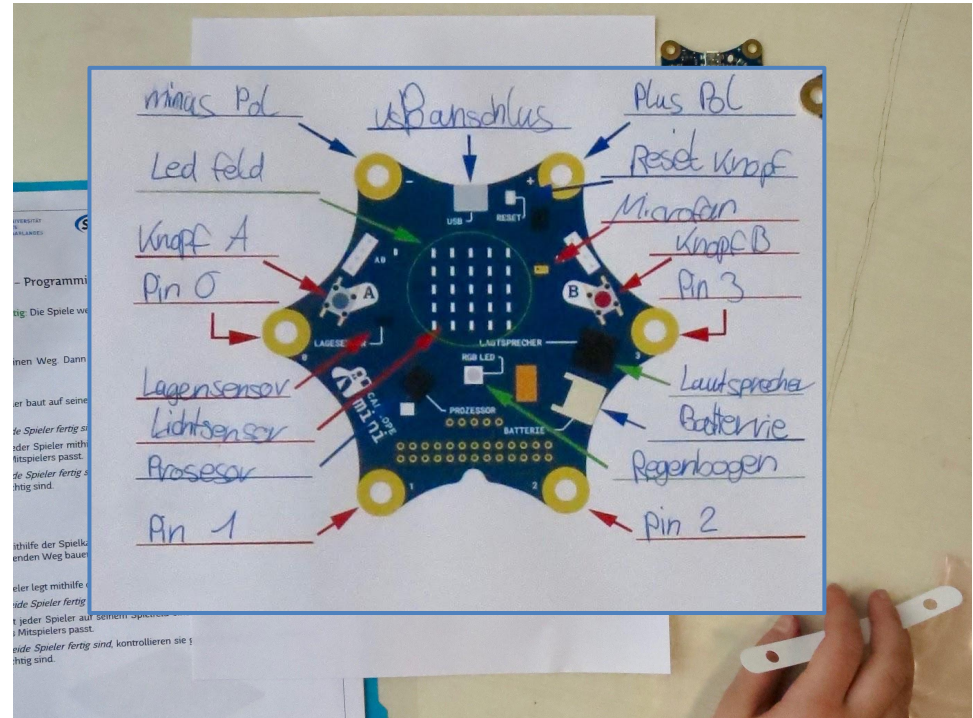 minus Pol
usBanschlus
Plus Pol
Led feld
Reset Knopf
Microfon
Knopf A
Knopf B
Pin 0
Pin 3
Lagensensor
Lautsprecher
Lichtsensor
Batterrie
Prosesor
Regenbogen
Pin 1
Pin 2
-
+
USB
RESET
AB
A
B
0
LAUTSPRECHER
3
RGB LED
mini
PROZESSOR
BATTERIE
1
2
– Programmi
tig: Die Spiele we
inen Weg. Dann
er baut auf seine
de Spieler fertig s
eder Spieler mithi
Mitspielers passt.
de Spieler fertig s
htig sind.
ithilfe der Spielka
enden Weg bauen
eler legt mithilfe
ide Spieler fertig
t jeder Spieler auf seinem
Mitspielers passt.
eide Spieler fertig sind, kontrollieren sie g
htig sind.